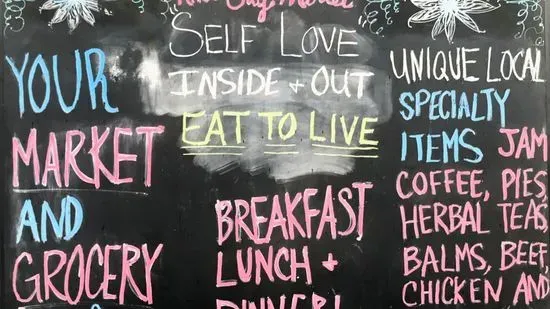 YOUR
MARKET
AND
GROCERY
Market
"SELF LOVE"
INSIDE + OUT
EAT TO LIVE
BREAKFAST
LUNCH +
DINNER!
UNIQUE LOCAL
SPECIALTY
ITEMS JAM
COFFEE, PIES,
HERBAL TEAS,
BALMS, BEEF,
CHICKEN AND